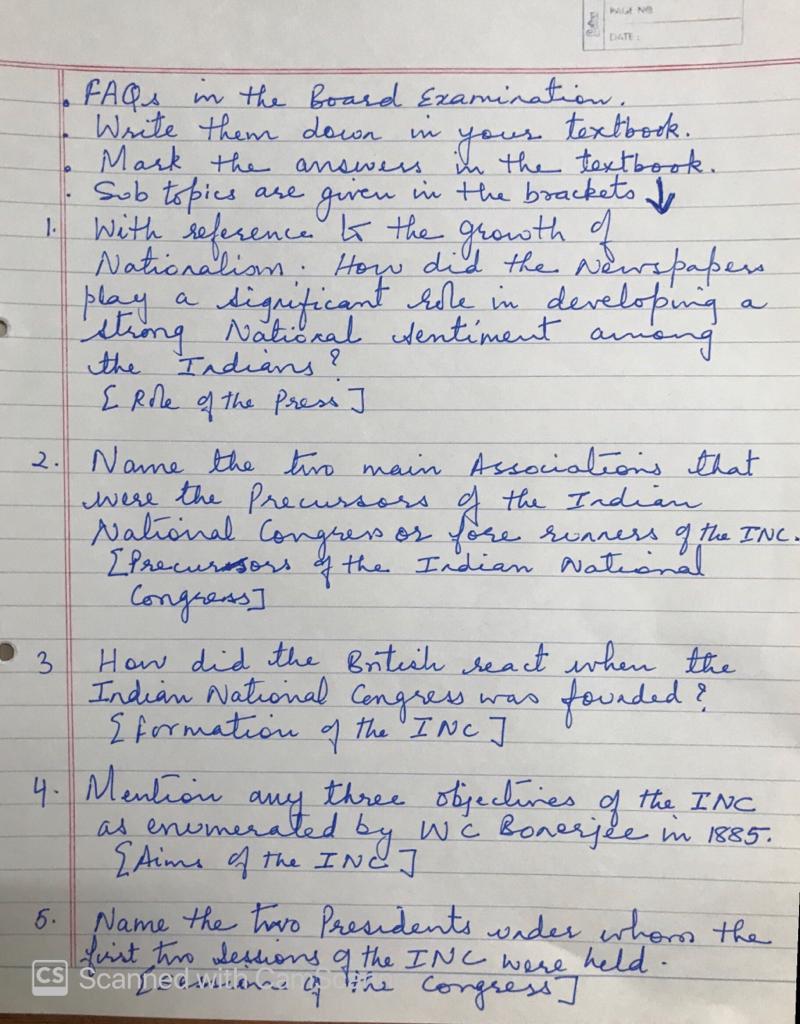 PAGE NO
DATE:
. FAQs in the Board Examination.
. Write them down in your textbook.
. Mark the answers in the textbook.
. Sub topics are given in the brackets ↓
1. With reference to the growth of
Nationalism. How did the Newspapers
play a significant role in developing a
strong National sentiment among
the Indians?
[Role of the Press]
2. Name the two main Associations that
were the Precursors of the Indian
National Congress or fore runners of the INC.
[Precursors of the Indian National
Congress]
3 How did the British react when the
Indian National Congress was founded?
[Formation of the INC]
4. Mention any three objectives of the INC
as enumerated by WC Bonerjee in 1885.
[Aims of the INC]
5. Name the two Presidents under whom the
first two sessions of the INC were held.
CS Scanned with CamScanner
of the Congress]